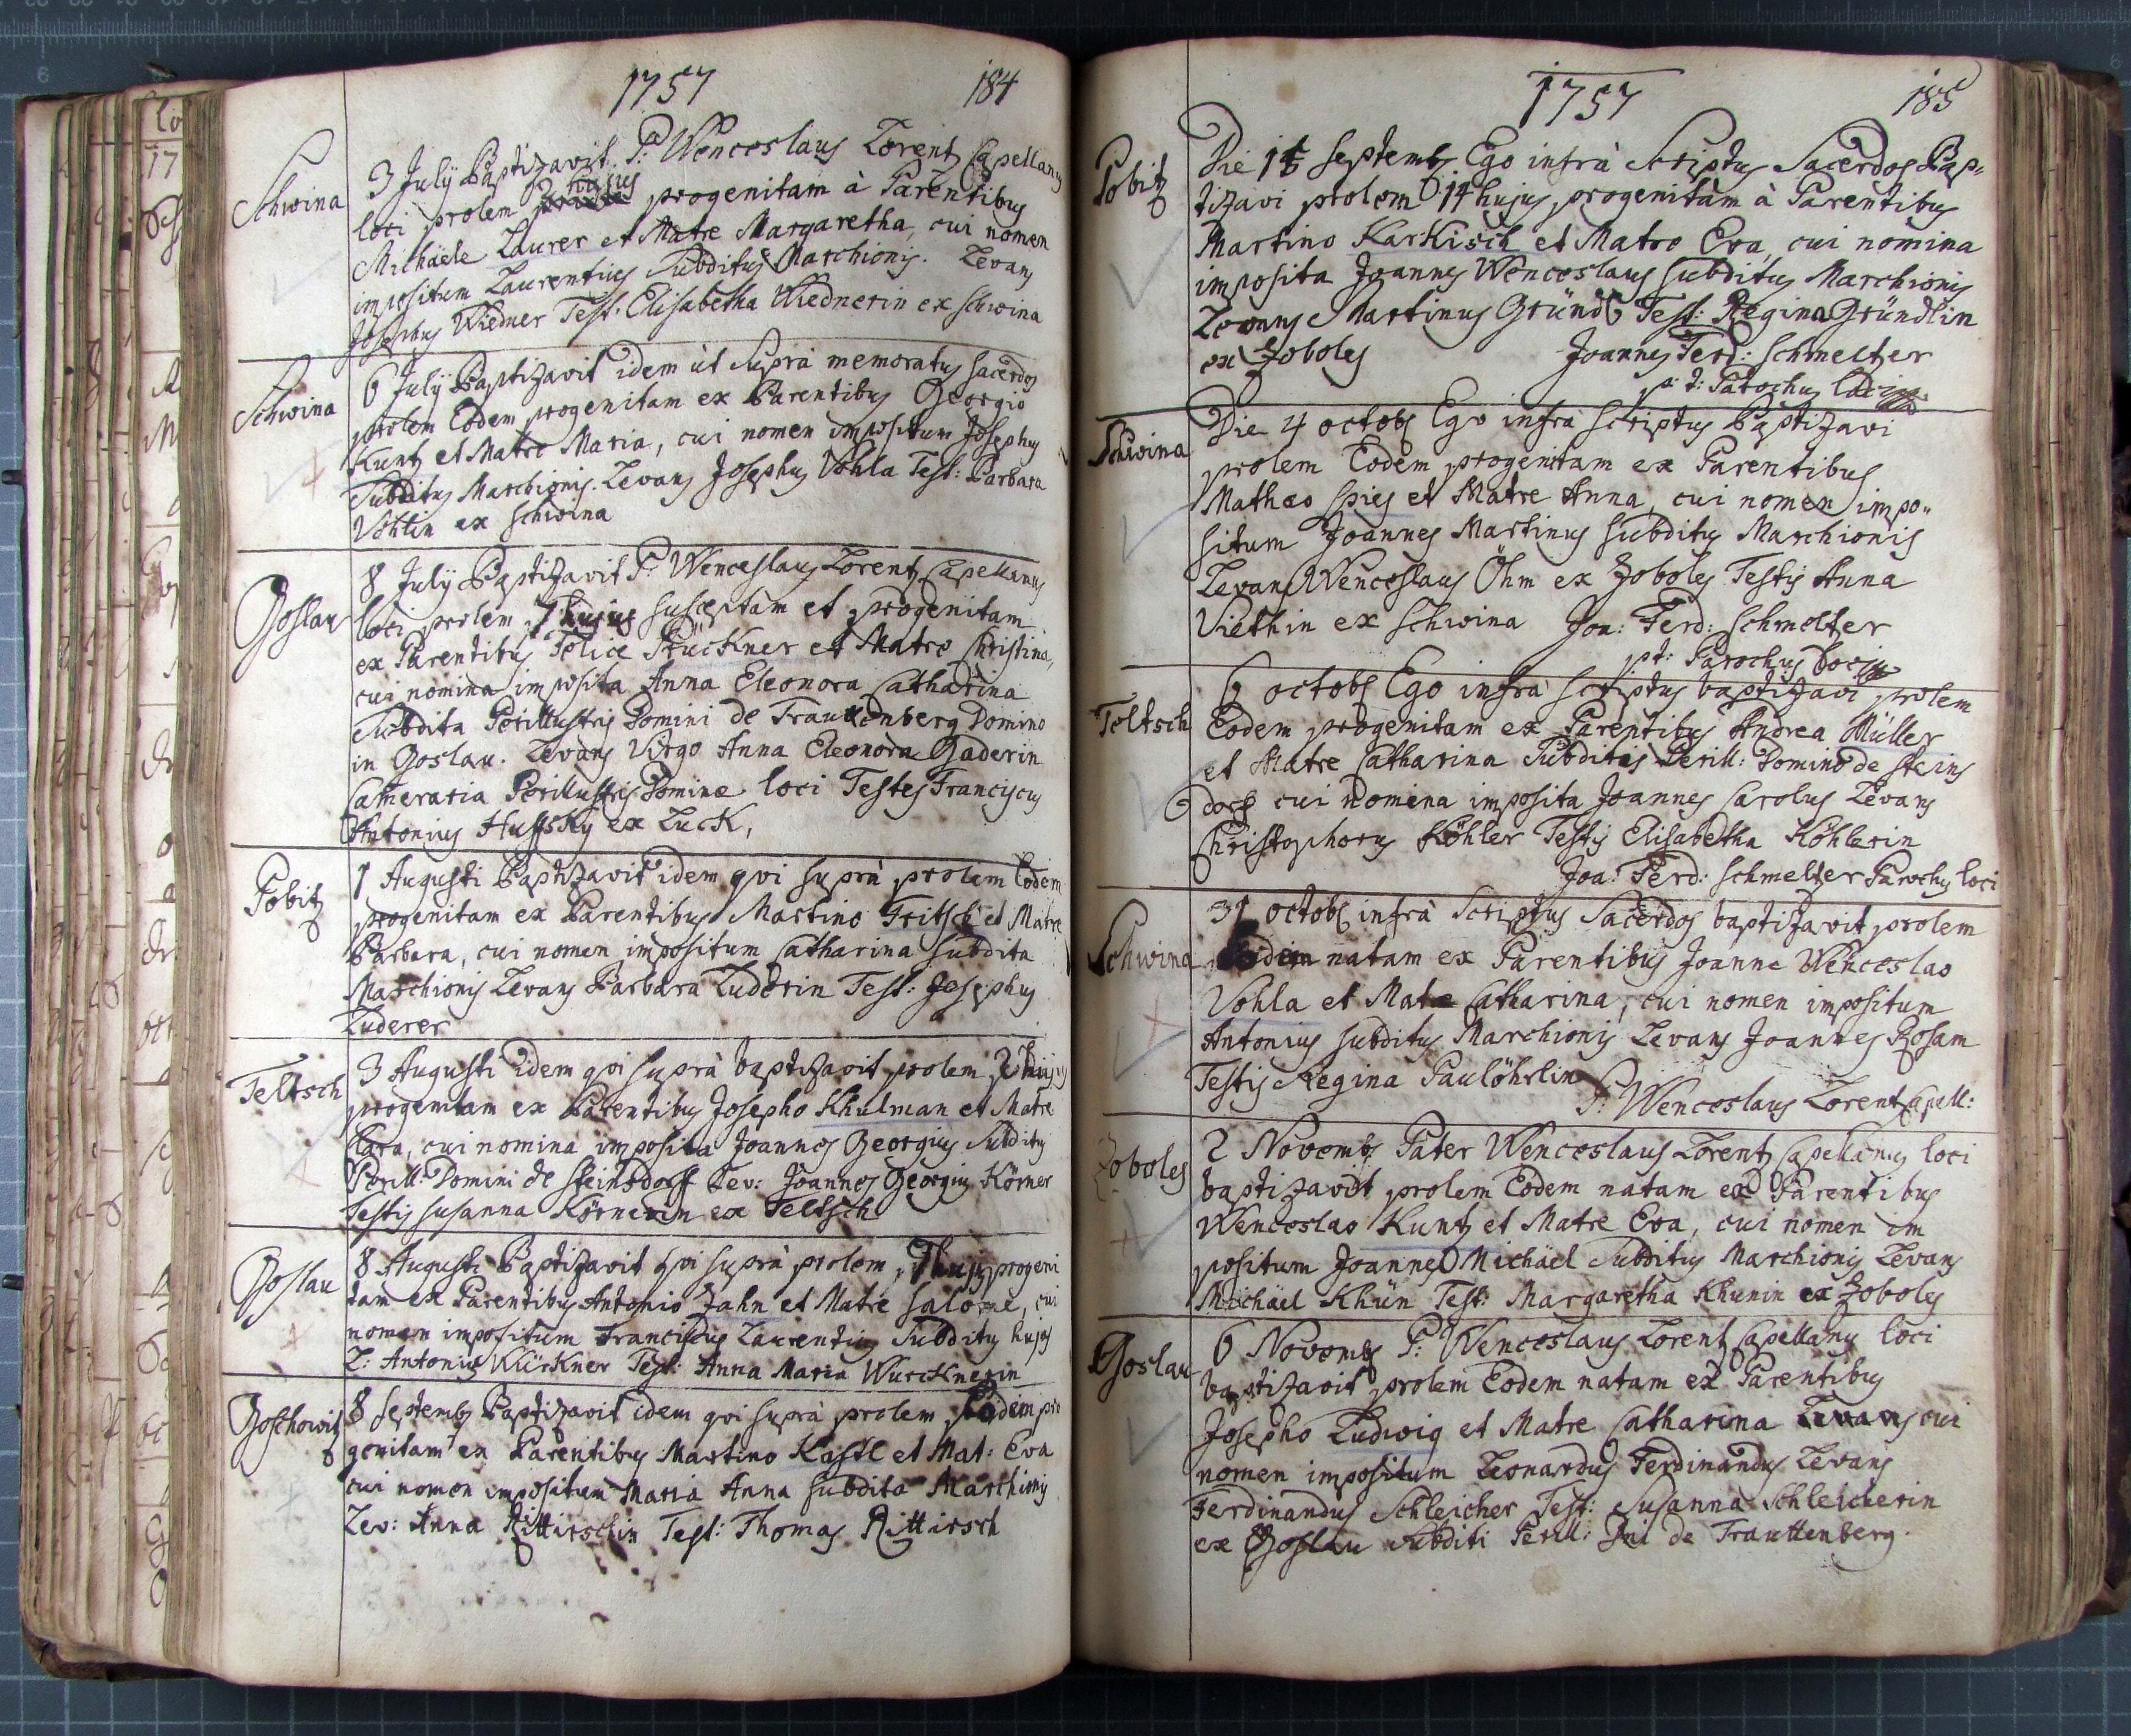 1757 184
Schwina
3 July Baptizavit P: Wenceslaus Lorentz Capellanus
loci prolem hujus progenitam à Parentibus
Michäele Laurer et Matre Margaretha, cui nomen
impositum Laurentius Subditus Marchionis. Levans
Josephus Wiedner Test: Elisabetha Wiednerin ex Schwina
Schwina
6 July Baptizavit idem út Suprà memoratus Sacerdos
prolem Eodem progenitam ex Parentibus Georgio
Kuntz et Matre Maria, cui nomen impositum Josephus
Subditus Marchionis. Levans Josephus Vohla Test: Barbara
Vohlin ex Schwina
Goslau
8 July Baptizavit P: Wenceslaus Lorentz Capellanus
loci prolem 7 hujus susceptam et progenitam
ex Parentibus Felice Stückner et Matre Christina,
cui nomina imposita Anna Eleonora Catharina
Subdita Perillustris Domini de Trauttenberg Domino
in Goslau. Levans Virgo Anna Eleonora Gaderin
Cameraria Perillustris Dominæ loci Testes Franciscus
Antonius Hussky ex Luck,
Pobitz
1 Augusti Baptizavit idem qvi suprà prolem Eodem
progenitam ex Parentibus Martino Fritsch et Matre
Barbara, cui nomen impositum Catharina Subdita
Marchionis Levans Barbara Luderin Test: Josephus
Luderer
Teltsch
3 Augusti idem qvi suprà baptizavit prolem 2 hujus
progenitam ex Parentibus Josepho Khulman et Matre
Clara, cui nomina imposita Joannes Georgius Subditus
Perill: Domini de Steinsdorff Lev: Joannes Georgius Körner
Testis Susanna Körnerin ex Teltsch
Goslau
8 Augusti Baptizavit qvi suprà prolem 7 hujus progeni
tam ex Parentibus Antonio Zahn et Matre Salome, cui
nomen impositum Franciscus Laurentius Subditus hujus
L: Antonius Würkner Test: Anna Maria Wurcknerin
Goschowitz
8 Septembs Baptizavit idem qvi suprà prolem Eodem pro
genitam ex Parentibus Martino Kastl et Mat: Eva
cui nomen impositum Maria Anna Subdita Marchionis
Lev: Anna Rittirschin Test: Thomas Rittirsch
1757 185
Pobitz
Die 15 Septembs Ego infrà Scriptus Sacerdos Bap-
tizavi prolem 14 hujus progenitàm à Parentibus
Martino Karkisch et Matre Eva, cui nomina
imposita Joannes Wenceslaus Subditus Marchionis
Levans Martinus Gründl Test: Regina Gründlin
ex Zoboles Joannes Ferd: Schmelter
p: t: Parochus loci
Schwina
Die 4 octobs Ego infrà Scriptus Baptizavi
prolem Eodem progenitam ex Parentibus
Mathæo Spies et Matre Anna, cui nomen impo-
situm Joannes Martinus Subditus Marchionis
Levans Wenceslaus Öhm ex Zoboles Testis Anna
Viethin ex Schwina Joa: Ferd: Schmelter
pt: Parochus loci
Teltsch
6 octobs Ego infrà Scriptus baptizavi prolem
Eodem progenitam ex Parentibus Andrea Müller
et Matre Catharina Subditis Perill: Domino de Steins
dorff cui nomina imposita Joannes Carolus Levans
Christophorus Köhler Testis Elisabetha Köhlerin
Joa: Ferd: Schmelter Parochus loci
Schwina
31 octobs infrà Scriptus Sacerdos baptizavit prolem
Eodem natam ex Parentibus Joanne Wenceslao
Vohla et Matre Catharina, cui nomen impositum
Antonius Subditus Marchionis Levans Joannes Rosam
Testis Regina Paulöhrlin
P: Wenceslaus Lorentz Capell:
Zoboles
2 Novembs Pater Wenceslaus Lorentz Capellanus loci
baptizavit prolem Eodem natam ex Parentibus
Wenceslao Kuntz et Matre Eva, cui nomen im
positum Joannes Michäel Subditus Marchionis Levans
Michäel Khün Test: Margaretha Khunin ex Zoboles
Goslau
6 Novembs P: Wenceslaus Lorentz Capellanus loci
baptizavit prolem Eodem natam ex Parentibus
Josepho Ludwig et Matre Catharina Levans cui
nomen impositum Leonardus Ferdinandus Levans
Ferdinandus Schleicher Test: Susanna Schleicherin
ex Goslau Subditi Perill: Dni de Trauttenberg.